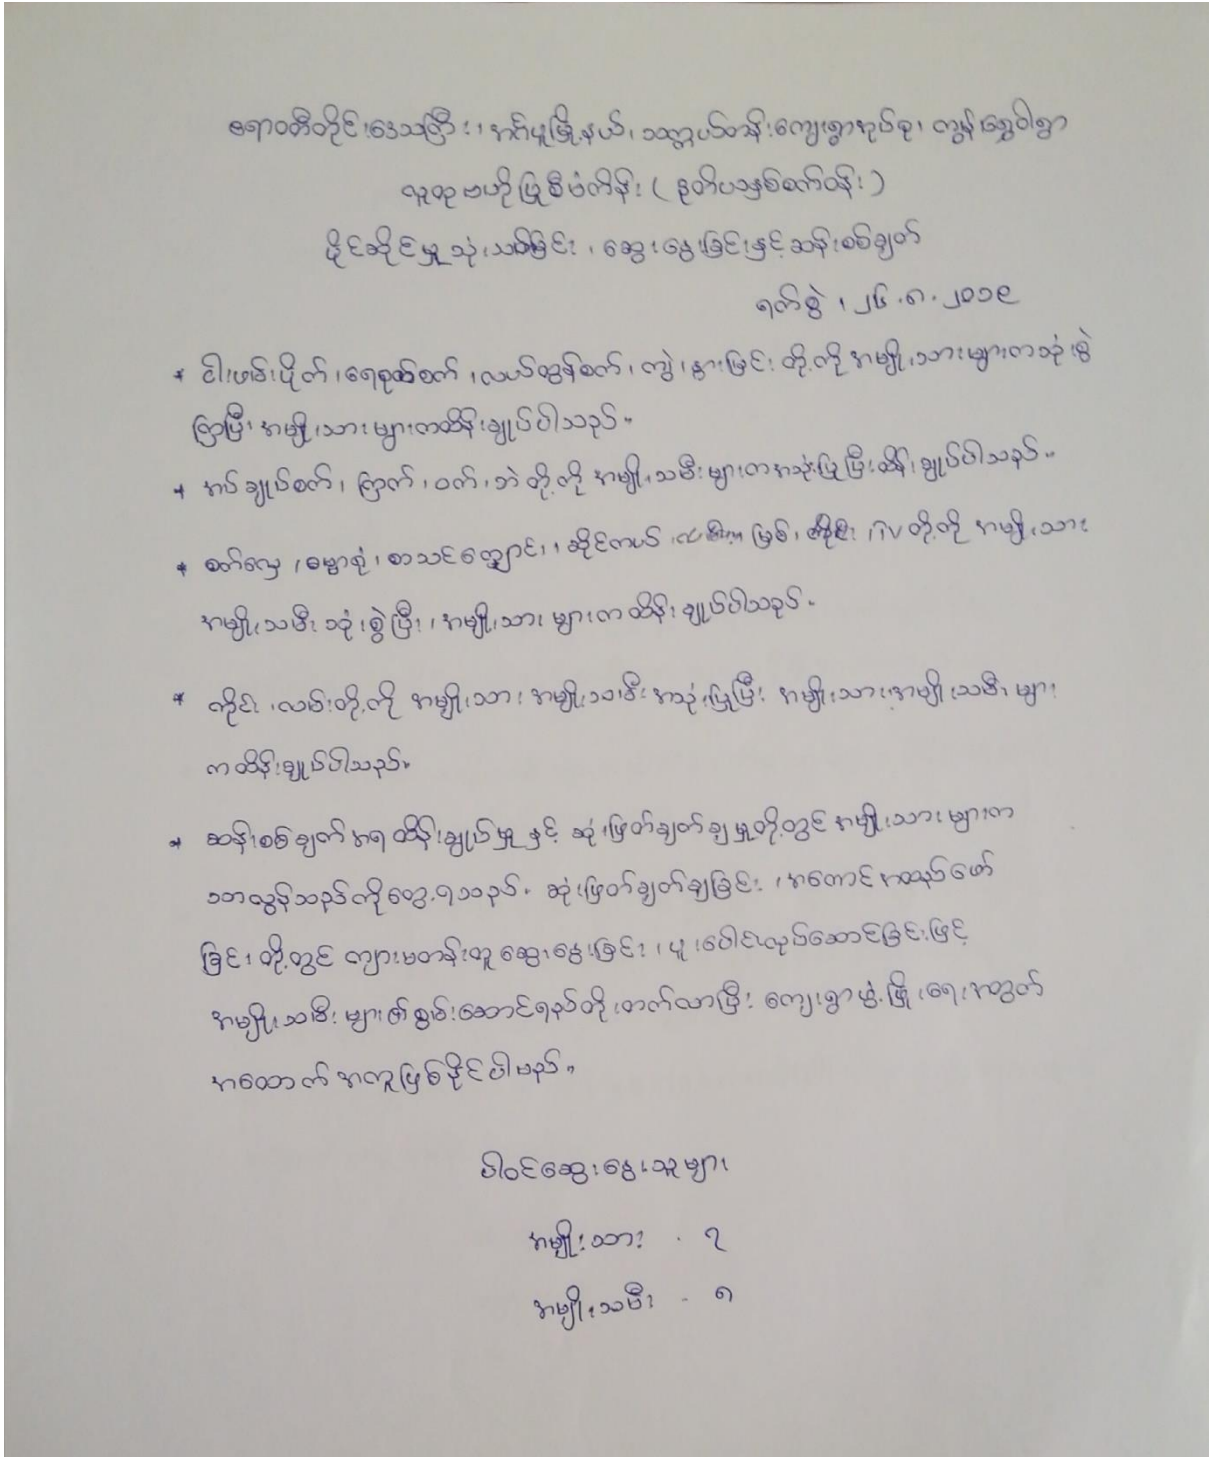 ဧရာဝတီတိုင်းဒေသကြီး၊ အင်္ဂပူမြို့နယ်၊ သက္ကယ်တန်းကျေးရွာအုပ်စု၊ ကျွန်းရွှေဝါရွာ
လူထုဗဟိုပြုစီမံကိန်း (ဒုတိယနှစ်စက်ဝန်း)
ပိုင်ဆိုင်မှု သုံးသပ်ခြင်း၊ ဆွေးနွေးခြင်းနှင့် ဆန်းစစ်ချက်
ရက်စွဲ ၊ ၂၆.၈.၂၀၁၉
* ငါးဖမ်းပိုက်၊ ရေစုပ်စက်၊ လယ်ထွန်စက်၊ ကျွဲ၊ နွားခြင်း တို့ကို အမျိုးသားများကသုံးစွဲ
ကြပြီး အမျိုးသားများကထိန်းချုပ်ပါသည်။
* အပ်ချုပ်စက်၊ ကြက်၊ ဝက်၊ ဘဲ တို့ကို အမျိုးသမီးများကအသုံးပြုပြီး ထိန်းချုပ်ပါသည်။
* စက်လှေ၊ ဓမ္မာရုံ၊ စာသင်ကျောင်း၊ ဆိုင်ကယ် မြစ်၊ TV တို့ကို အမျိုးသား
အမျိုးသမီး သုံးစွဲပြီး၊ အမျိုးသား များက ထိန်းချုပ်ပါသည်။
* ကိုင်း၊ လမ်းတို့ကို အမျိုးသား အမျိုးသမီး အသုံးပြုပြီး အမျိုးသား၊ အမျိုးသမီး များ
က ထိန်းချုပ်ပါသည်။
* ဆန်းစစ်ချက်အရ ထိန်းချုပ်မှု နှင့် ဆုံးဖြတ်ချက်ချမှုတို့တွင် အမျိုးသား များက
သာလွန်သည်ကိုတွေ့ရသည်။ ဆုံးဖြတ်ချက်ချခြင်း၊ အကောင်အထည်ဖော်
ခြင်း တို့တွင် ကျားမတန်းတူ ဆွေးနွေးခြင်း၊ ပူးပေါင်းလုပ်ဆောင်ခြင်းဖြင့်
အမျိုးသမီး များ၏စွမ်းဆောင်ရည်တိုးတက်လာပြီး ကျေးရွာဖွံ့ဖြိုးရေးအတွက်
အထောက်အကူဖြစ်နိုင်ပါမည်။
ပါဝင်ဆွေးနွေးသူများ
အမျိုးသား - ၇
အမျိုးသမီး - ၈